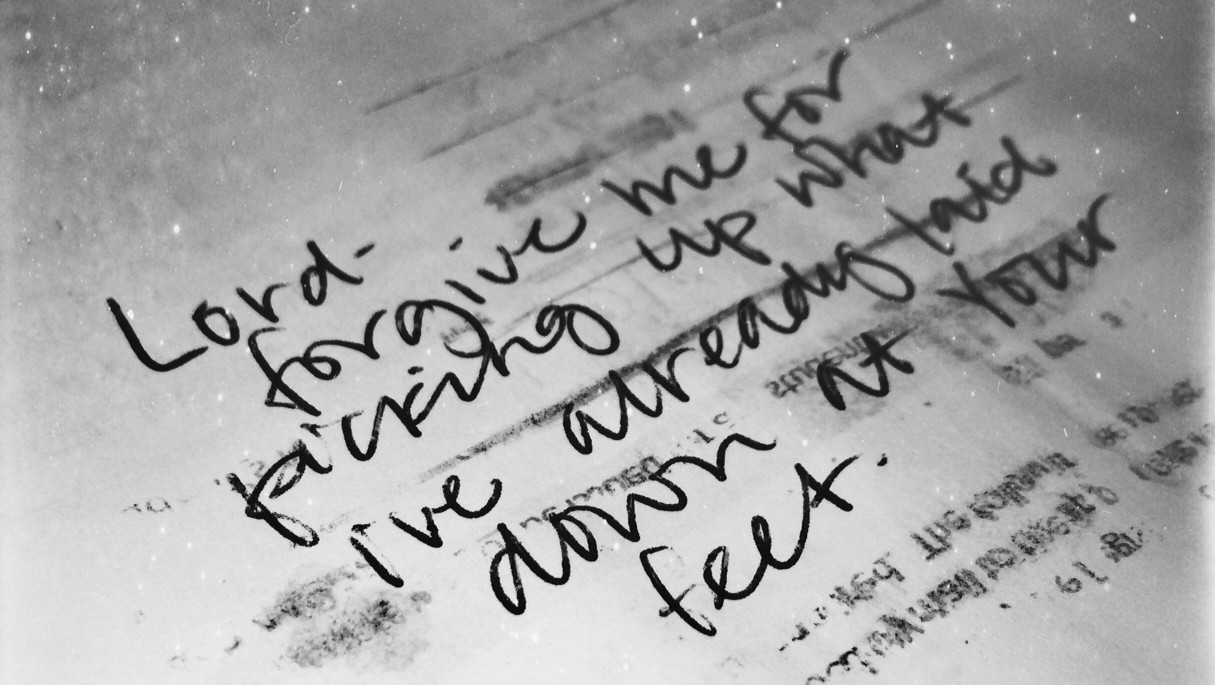 Lord-
forgive me for
picking up what
I've already laid
down at your
feet.